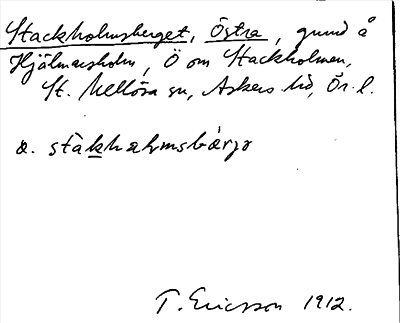 Stackholmsberget, Östra, grund å
Hjälmarsholm, Ö om Stackholmen,
St. Mellösa sn, Askers hd, Ör. l.
a.
T. Ericsson 1912.